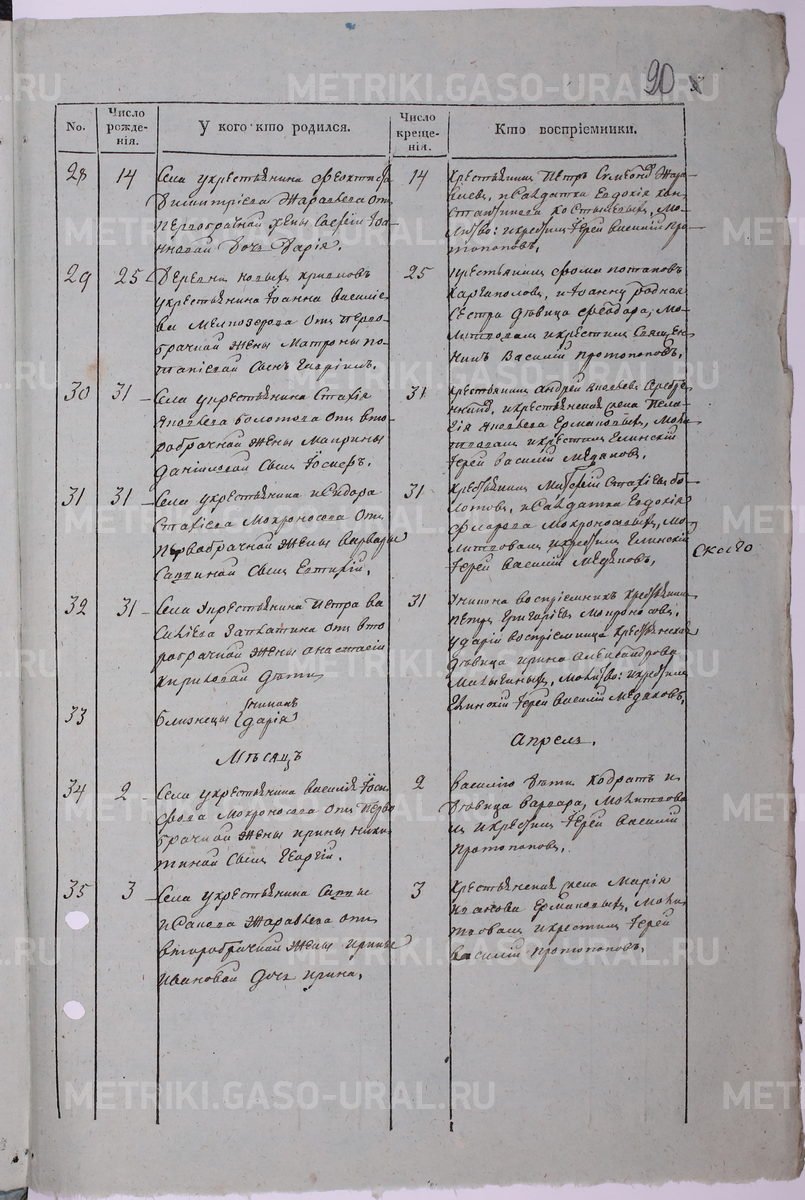 90
No.
Число рожде-
нія.
У кого кто родился.
Число креще-
нія.
Кто воспріемники.
28
14
Села укрестьянина Феоктиста
Димитріева Жаравлева отъ
первобрачной жены Софіи Іоа-
нновой Дочь Дарія.
14
крестьянинъ Петръ Симеоновъ Жара-
влевъ, и Салдатка Евдокія кон-
стантинова Костылевыхъ, Мо-
литво: икрестилъ Іерей Василій Про-
топоповъ.
29
25
Деревни новыхъ кривковъ
укрестьянина Іоанна Василіе-
ва Мелнозерова отъ перво-
брачной жены Матроны по-
тапіевой Сынъ Георгій.
25
крестьянинъ Фома потаповъ
Каргаполовъ, и Іоанну родная
Сестра девица Феодора, мо-
литвовалъ икрестилъ Священ-
никъ Василій протопоповъ.
30
31
Села укрестьянина Стахія
Яковлева Болотова отъ вто-
робрачной жены Маврины
Даніиловой Сынъ Іосифъ.
31
крестьянинъ Андрей Яковлевъ
икрестьянская жена Пела-
гія Яковлева Ермаковыхъ, Моли-
твовалъ икрестилъ Клинскій
Іерей Василій Медяковъ.
31
31
Села укрестьянина исидора
Стахіева Мокроносова отъ
первобрачной жены Варвары
Саввиной Сынъ Евтихій.
31
Крестьянинъ Матфей Стахіевъ бо-
лотовъ, и Салдатка Евдокія
Фларова Мокроносовыхъ, Мо-
литвовалъ икрестилъ Клинскій
Іерей Василій Медяковъ.
32
31
Села Укрестьянина Петра ва-
силіева Заплатина отъ вто-
робрачной жены анастасіи
Кириловой дѣти
31
Уникона воспріемникъ крестьянинъ
Петръ Григоріевъ Мокроносовъ,
ударіи воспріемница крестьянская
дѣвица ирина Александрова
Малыгиныхъ, Молитво: икрестилъ
Клинскій Іерей Василій Медяковъ.
33
Никонъ
Близнецы Дарія
Мѣсяцъ
Апрель.
34
2
Села укрестьянина василія Іоси-
фова Мокроносова отъ перво
брачной жены ирины ники-
тиной Сынъ Георгій.
2
василіго дѣти Кодратъ и
дѣвица варвара, Молитвова
лъ икрестилъ Іерей Василій
протопоповъ.
35
3
Села укрестьянина Саввы
исакова Жаравлева отъ
второбрачной жены ирины
ивановой дочь ирина.
3
Крестьянская жена Марія
иванова Ермаковыхъ, Моли-
твовалъ икрестилъ Іерей
василій протопоповъ.
METRIKI.GASO-URAL.RU